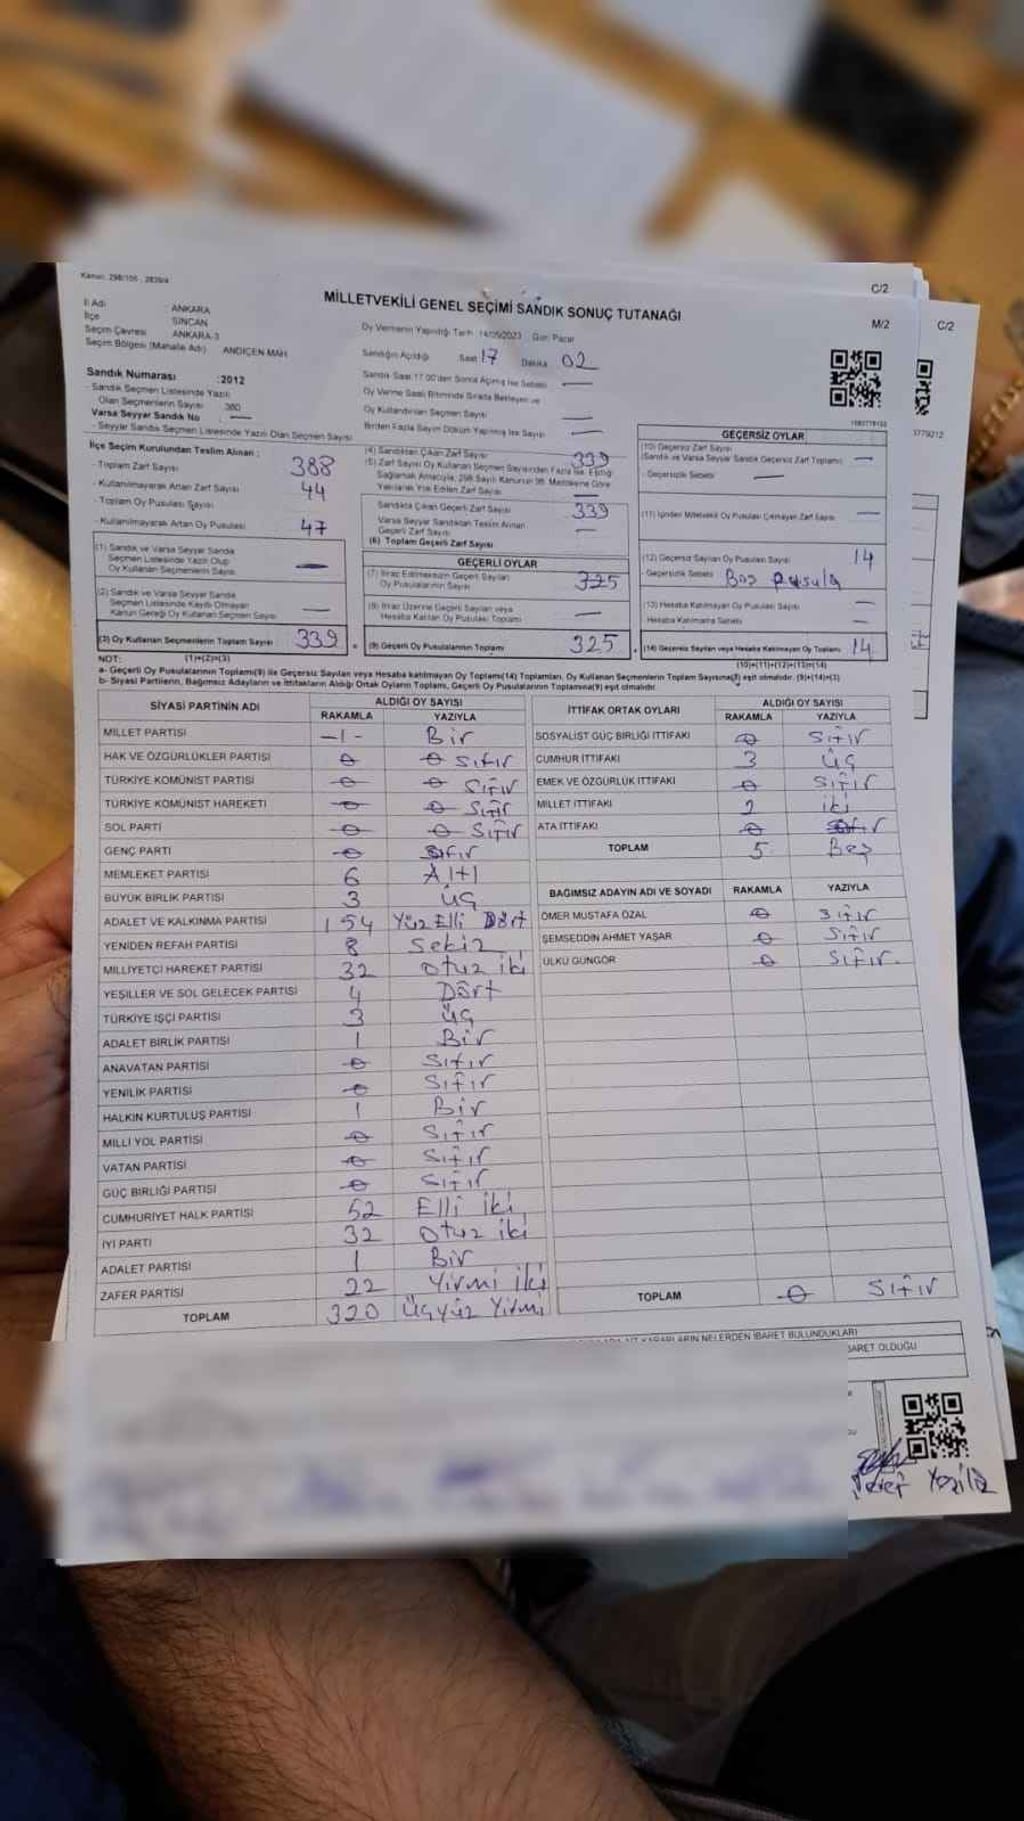 Kanun: 298/105 , 2839/4
C/2
MİLLETVEKİLİ GENEL SEÇİMİ SANDIK SONUÇ TUTANAĞI
M/2
C/2
İl Adı : ANKARA
İlçe SİNCAN
Seçim Çevresi ANKARA-3
Seçim Bölgesi (Mahalle Adı) ANDİÇEN MAH.
Oy Vermenin Yapıldığı Tarih: 14/05/2023 Gün: Pazar
Sandığın Açıldığı Saat 17 Dakika 02
Sandık Numarası : 2012
- Sandık Seçmen Listesinde Yazılı
Olan Seçmenlerin Sayısı 380
Varsa Seyyar Sandık No —
- Seyyar Sandık Seçmen Listesinde Yazılı Olan Seçmen Sayısı
Sandık Saat 17.00'den Sonra Açılmış İse Sebebi —
Oy Verme Saati Bitiminde Sırada Bekleyen ve
Oy Kullandırılan Seçmen Sayısı —
Birden Fazla Sayım Döküm Yapılmış İse Sayısı —
İlçe Seçim Kurulundan Teslim Alınan :
- Toplam Zarf Sayısı 388
- Kullanılmayarak Artan Zarf Sayısı 44
- Toplam Oy Pusulası Sayısı
- Kullanılmayarak Artan Oy Pusulası 47
(1) Sandık ve Varsa Seyyar Sandık
Seçmen Listesinde Yazılı Olup
Oy Kullanan Seçmenlerin Sayısı —
(2) Sandık ve Varsa Seyyar Sandık
Seçmen Listesinde Kayıtlı Olmayan
Kanun Gereği Oy Kullanan Seçmen Sayısı —
(3) Oy Kullanan Seçmenlerin Toplam Sayısı 339
(1)+(2)=(3)
(4) Sandıktan Çıkan Zarf Sayısı 339
(5) Zarf Sayısı Oy Kullanan Seçmen Sayısından Fazla İse, Eşitliği
Sağlamak Amacıyla, 298 Sayılı Kanunun 98. Maddesine Göre
Yakılarak Yok Edilen Zarf Sayısı —
Sandıkta Çıkan Geçerli Zarf Sayısı 339
Varsa Seyyar Sandıktan Teslim Alınan
Geçerli Zarf Sayısı —
(6) Toplam Geçerli Zarf Sayısı
GEÇERLİ OYLAR
(7) İtiraz Edilmeksizin Geçerli Sayılan
Oy Pusulalarının Sayısı 325
(8) İtiraz Üzerine Geçerli Sayılan veya
Hesaba Katılan Oy Pusulası Toplamı —
(9) Geçerli Oy Pusulalarının Toplamı 325
GEÇERSİZ OYLAR
(10) Geçersiz Zarf Sayısı
(Sandık ve Varsa Seyyar Sandık Geçersiz Zarf Toplamı) —
Geçersizlik Sebebi —
(11) İçinden Milletvekili Oy Pusulası Çıkmayan Zarf Sayısı —
(12) Geçersiz Sayılan Oy Pusulası Sayısı 14
Geçersizlik Sebebi Boş Pusula
(13) Hesaba Katılmayan Oy Pusulası Sayısı —
Hesaba Katılmama Sebebi —
(14) Geçersiz Sayılan veya Hesaba Katılmayan Oy Toplamı 14
(10)+(11)+(12)+(13)=(14)
NOT:
a- Geçerli Oy Pusulalarının Toplamı(9) ile Geçersiz Sayılan veya Hesaba katılmayan Oy Toplamı(14) Toplamları, Oy Kullanan Seçmenlerin Toplam Sayısına(3) eşit olmalıdır. (9)+(14)=(3)
b- Siyasi Partilerin, Bağımsız Adayların ve İttifakların Aldığı Ortak Oyların Toplamı, Geçerli Oy Pusulalarının Toplamına(9) eşit olmalıdır.
SİYASİ PARTİNİN ADI ALDIĞI OY SAYISI
RAKAMLA YAZIYLA
MİLLET PARTİSİ -1- Bir
HAK VE ÖZGÜRLÜKLER PARTİSİ 0 0 Sıfır
TÜRKİYE KOMÜNİST PARTİSİ 0 0 Sıfır
TÜRKİYE KOMÜNİST HAREKETİ 0 0 Sıfır
SOL PARTİ 0 0 Sıfır
GENÇ PARTİ 0 Sıfır
MEMLEKET PARTİSİ 6 Altı
BÜYÜK BİRLİK PARTİSİ 3 Üç
ADALET VE KALKINMA PARTİSİ 154 Yüz Elli Dört
YENİDEN REFAH PARTİSİ 8 Sekiz
MİLLİYETÇİ HAREKET PARTİSİ 32 Otuz iki
YEŞİLLER VE SOL GELECEK PARTİSİ 4 Dört
TÜRKİYE İŞÇİ PARTİSİ 3 Üç
ADALET BİRLİK PARTİSİ 1 Bir
ANAVATAN PARTİSİ 0 Sıfır
YENİLİK PARTİSİ 0 Sıfır
HALKIN KURTULUŞ PARTİSİ 1 Bir
MİLLİ YOL PARTİSİ 0 Sıfır
VATAN PARTİSİ 0 Sıfır
GÜÇ BİRLİĞİ PARTİSİ 0 Sıfır
CUMHURİYET HALK PARTİSİ 52 Elli iki
İYİ PARTİ 32 Otuz iki
ADALET PARTİSİ 1 Bir
ZAFER PARTİSİ 22 Yirmi iki
TOPLAM 320 Üçyüz Yirmi
İTTİFAK ORTAK OYLARI ALDIĞI OY SAYISI
RAKAMLA YAZIYLA
SOSYALİST GÜÇ BİRLİĞİ İTTİFAKI 0 Sıfır
CUMHUR İTTİFAKI 3 Üç
EMEK VE ÖZGÜRLÜK İTTİFAKI 0 Sıfır
MİLLET İTTİFAKI 2 iki
ATA İTTİFAKI 0 Sıfır
TOPLAM 5 Beş
BAĞIMSIZ ADAYIN ADI VE SOYADI RAKAMLA YAZIYLA
ÖMER MUSTAFA ÖZAL 0 Sıfır
ŞEMSEDDİN AHMET YAŞAR 0 Sıfır
ÜLKÜ GÜNGÖR 0 Sıfır.
TOPLAM 0 Sıfır
NELERDEN İBARET BULUNDUKLARI
BARET OLDUĞU